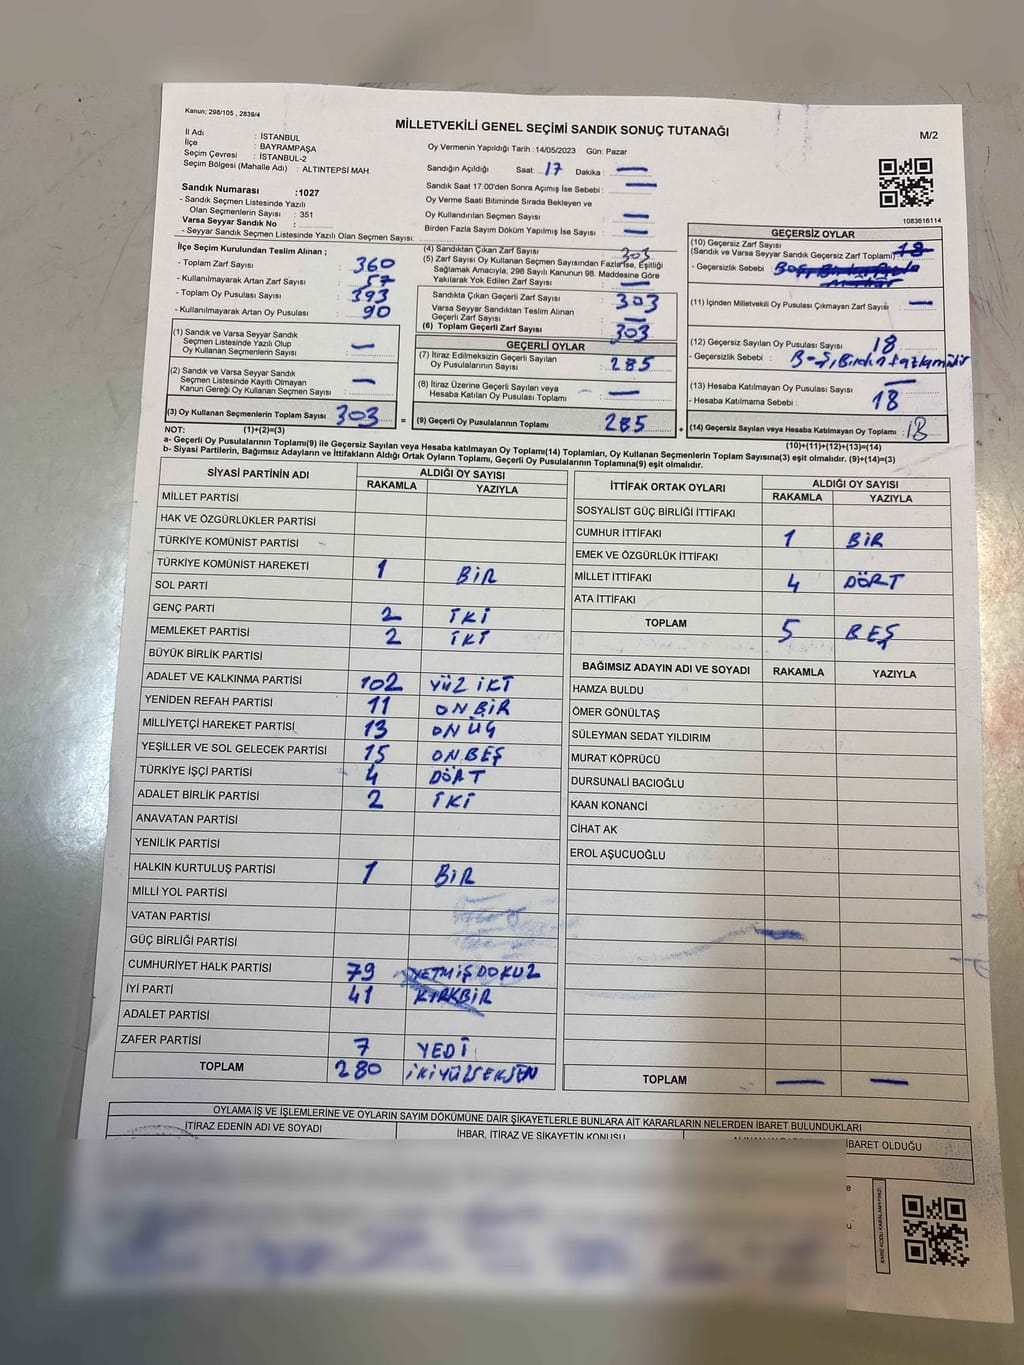 Kanun; 298/105 , 2839/4
MİLLETVEKİLİ GENEL SEÇİMİ SANDIK SONUÇ TUTANAĞI
M/2
İl Adı : İSTANBUL
İlçe : BAYRAMPAŞA
Seçim Çevresi : İSTANBUL-2
Seçim Bölgesi (Mahalle Adı) : ALTINTEPSİ MAH.
Sandık Numarası :1027
- Sandık Seçmen Listesinde Yazılı
Olan Seçmenlerin Sayısı : 351
Varsa Seyyar Sandık No :
- Seyyar Sandık Seçmen Listesinde Yazılı Olan Seçmen Sayısı:
Oy Vermenin Yapıldığı Tarih :14/05/2023 Gün: Pazar
Sandığın Açıldığı Saat: 17 Dakika : —
Sandık Saat 17:00'den Sonra Açımış İse Sebebi : —
Oy Verme Saati Bitiminde Sırada Bekleyen ve
Oy Kullandırılan Seçmen Sayısı : —
Birden Fazla Sayım Döküm Yapılmış İse Sayısı : —
1083616114
İlçe Seçim Kurulundan Teslim Alınan ;
- Toplam Zarf Sayısı : 360
- Kullanılmayarak Artan Zarf Sayısı : 57
- Toplam Oy Pusulası Sayısı : 393
- Kullanılmayarak Artan Oy Pusulası : 90
(1) Sandık ve Varsa Seyyar Sandık
Seçmen Listesinde Yazılı Olup
Oy Kullanan Seçmenlerin Sayısı : —
(2) Sandık ve Varsa Seyyar Sandık
Seçmen Listesinde Kayıtlı Olmayan
Kanun Gereği Oy Kullanan Seçmen Sayısı : —
(3) Oy Kullanan Seçmenlerin Toplam Sayısı : 303 =
(4) Sandıktan Çıkan Zarf Sayısı : 303
(5) Zarf Sayısı Oy Kullanan Seçmen Sayısından Fazla İse, Eşitliği
Sağlamak Amacıyla, 298 Sayılı Kanunun 98. Maddesine Göre
Yakılarak Yok Edilen Zarf Sayısı : —
Sandıkta Çıkan Geçerli Zarf Sayısı : 303
Varsa Seyyar Sandıktan Teslim Alınan
Geçerli Zarf Sayısı : —
(6) Toplam Geçerli Zarf Sayısı : 303
GEÇERLİ OYLAR
(7) İtiraz Edilmeksizin Geçerli Sayılan
Oy Pusulalarının Sayısı : 285
(8) İtiraz Üzerine Geçerli Sayılan veya
Hesaba Katılan Oy Pusulası Toplamı : —
(9) Geçerli Oy Pusulalarının Toplamı : 285 +
GEÇERSİZ OYLAR
(10) Geçersiz Zarf Sayısı
(Sandık ve Varsa Seyyar Sandık Geçersiz Zarf Toplamı) : 18
- Geçersizlik Sebebi :
(11) İçinden Milletvekili Oy Pusulası Çıkmayan Zarf Sayısı : —
(12) Geçersiz Sayılan Oy Pusulası Sayısı : 18
- Geçersizlik Sebebi :
(13) Hesaba Katılmayan Oy Pusulası Sayısı : —
- Hesaba Katılmama Sebebi : 18
(14) Geçersiz Sayılan veya Hesaba Katılmayan Oy Toplamı : 18
NOT: (1)+(2)=(3)
(10)+(11)+(12)+(13)=(14)
a- Geçerli Oy Pusulalarının Toplamı(9) ile Geçersiz Sayılan veya Hesaba katılmayan Oy Toplamı(14) Toplamları, Oy Kullanan Seçmenlerin Toplam Sayısına(3) eşit olmalıdır. (9)+(14)=(3)
b- Siyasi Partilerin, Bağımsız Adayların ve İttifakların Aldığı Ortak Oyların Toplamı, Geçerli Oy Pusulalarının Toplamına(9) eşit olmalıdır.
SİYASİ PARTİNİN ADI ALDIĞI OY SAYISI
RAKAMLA YAZIYLA
MİLLET PARTİSİ
HAK VE ÖZGÜRLÜKLER PARTİSİ
TÜRKİYE KOMÜNİST PARTİSİ
TÜRKİYE KOMÜNİST HAREKETİ 1 BİR
SOL PARTİ
GENÇ PARTİ 2 İKİ
MEMLEKET PARTİSİ 2 İKİ
BÜYÜK BİRLİK PARTİSİ
ADALET VE KALKINMA PARTİSİ 102 YÜZ İKİ
YENİDEN REFAH PARTİSİ 11 ONBİR
MİLLİYETÇİ HAREKET PARTİSİ 13 ONÜÇ
YEŞİLLER VE SOL GELECEK PARTİSİ 15 ONBEŞ
TÜRKİYE İŞÇİ PARTİSİ 4 DÖRT
ADALET BİRLİK PARTİSİ 2 İKİ
ANAVATAN PARTİSİ
YENİLİK PARTİSİ
HALKIN KURTULUŞ PARTİSİ 1 BİR
MİLLİ YOL PARTİSİ
VATAN PARTİSİ
GÜÇ BİRLİĞİ PARTİSİ
CUMHURİYET HALK PARTİSİ 79 YETMİŞDOKUZ
İYİ PARTİ 41 KIRKBİR
ADALET PARTİSİ
ZAFER PARTİSİ 7 YEDİ
TOPLAM 280 İKİYÜZSEKSEN
İTTİFAK ORTAK OYLARI ALDIĞI OY SAYISI
RAKAMLA YAZIYLA
SOSYALİST GÜÇ BİRLİĞİ İTTİFAKI
CUMHUR İTTİFAKI 1 BİR
EMEK VE ÖZGÜRLÜK İTTİFAKI
MİLLET İTTİFAKI 4 DÖRT
ATA İTTİFAKI
TOPLAM 5 BEŞ
BAĞIMSIZ ADAYIN ADI VE SOYADI RAKAMLA YAZIYLA
HAMZA BULDU
ÖMER GÖNÜLTAŞ
SÜLEYMAN SEDAT YILDIRIM
MURAT KÖPRÜCÜ
DURSUNALİ BACIOĞLU
KAAN KONANCİ
CİHAT AK
EROL AŞUCUOĞLU
TOPLAM — —
OYLAMA İŞ VE İŞLEMLERİNE VE OYLARIN SAYIM DÖKÜMÜNE DAİR ŞİKAYETLERLE BUNLARA AİT KARARLARIN NELERDEN İBARET BULUNDUKLARI
İTİRAZ EDENİN ADI VE SOYADI
İHBAR, İTİRAZ VE ŞİKAYETİN KONUSU
İBARET OLDUĞU
KARE KODU KARALAMAYINIZ!